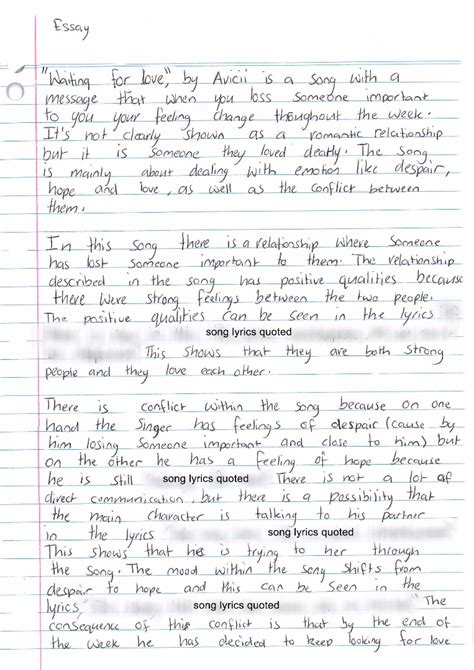 Essay
"Waiting for love," by Avicii is a song with a
message that when you loss someone important
to you your feeling change thoughout the week.
It's not clearly shown as a romantic relationship
but it is someone they loved deatly. The song
is mainly about dealing with emotion like despair,
hope and love, as well as the conflict between
them.
In this song there is a relationship where someone
has lost someone important to them. The relationship
described in the song has positive qualities because
there were strong feelings between the two people.
The positive qualities can be seen in the lyrics
song lyrics quoted
This shows that they are both strong
people and they love each other.
There is conflict within the song because on one
hand the singer has feelings of despair (cause by
him losing someone important and close to him) but
on the other he has a feeling of hope because
he is still song lyrics quoted There is not a lot of
direct communication, but there is a possibility that
the main character is talking to his partner
in the lyrics song lyrics quoted
This shows that he is trying to her through
the song. The mood within the song shifts from
despair to hope and this can be seen in the
lyrics song lyrics quoted " The
consequence of this conflict is that by the end of
the week he has decided to keep looking for love